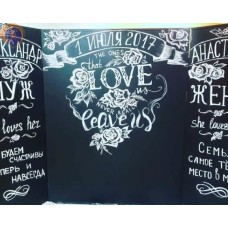 КСАНДР
МУЖ
loves her
БУДЕМ
СЧАСТЛИВЫ
ТЕПЕРЬ И
НАВСЕГДА
1 ИЮЛЯ 2017
THE ONES
that
LOVE
us
leave us
АНАСТ
ЖЕН
she love
СЕМЬ
САМОЕ ТЁ
МЕСТО В М